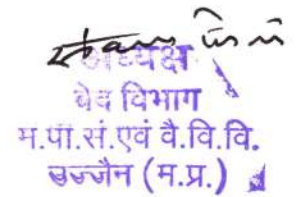 अध्यक्ष
वेद विभाग
म.पा.सं.एवं वै.वि.वि.
उज्जैन (म.प्र.)